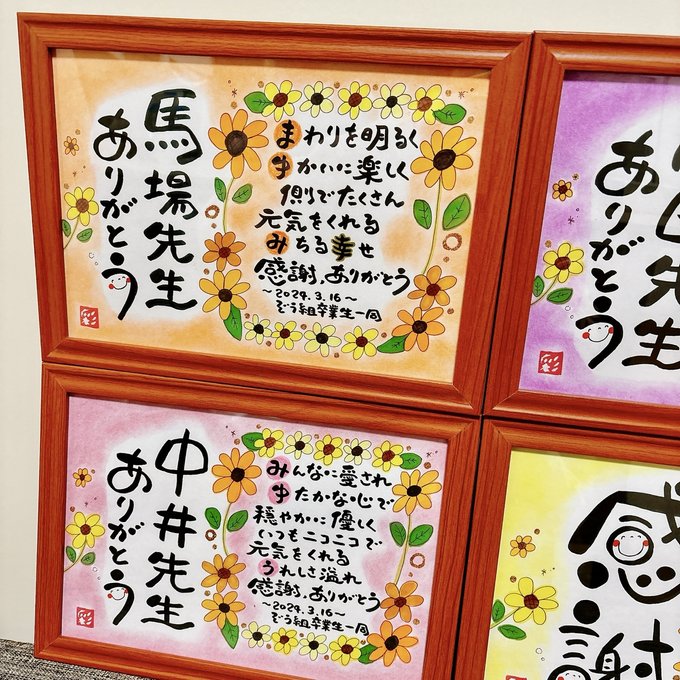 馬場先生
ありがとう
まわりを明るく
ゆかいに楽しく
側でたくさん
元気をくれる
みちる幸せ
感謝、ありがとう
〜2024.3.16〜
ぞう組卒業生一同
先生
ありがとう
中井先生
ありがとう
みんなに愛され
ゆたかな心で
穏やかに優しく
いつもニコニコで
元気をくれる
うれしさ溢れ
感謝、ありがとう
〜2024.3.16〜
ぞう組卒業生一同
感謝